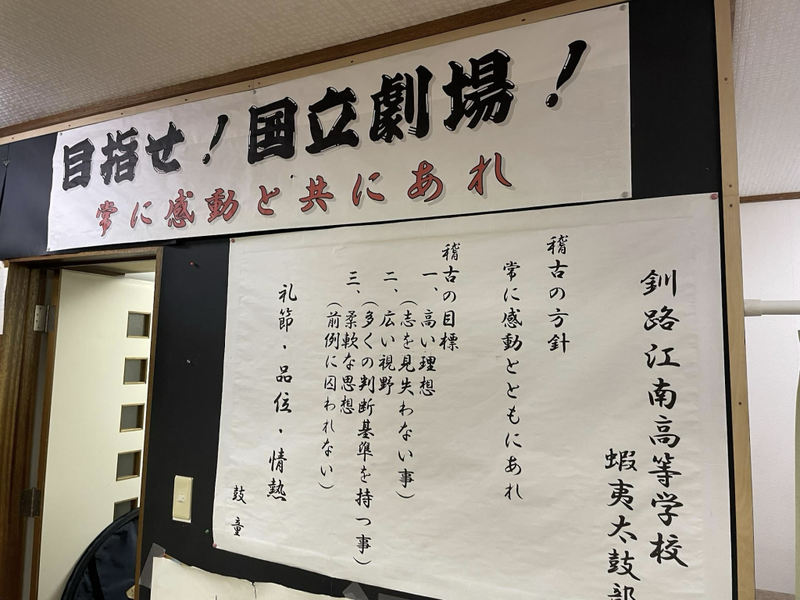 目指せ！国立劇場！
常に感動と共にあれ
釧路江南高等学校
蝦夷太鼓部
稽古の方針
常に感動とともにあれ
稽古の目標
一、高い理想
（志を見失わない事）
二、広い視野
（多くの判断基準を持つ事）
三、柔軟な思想
（前例に囚われない）
礼節・品位・情熱
鼓童